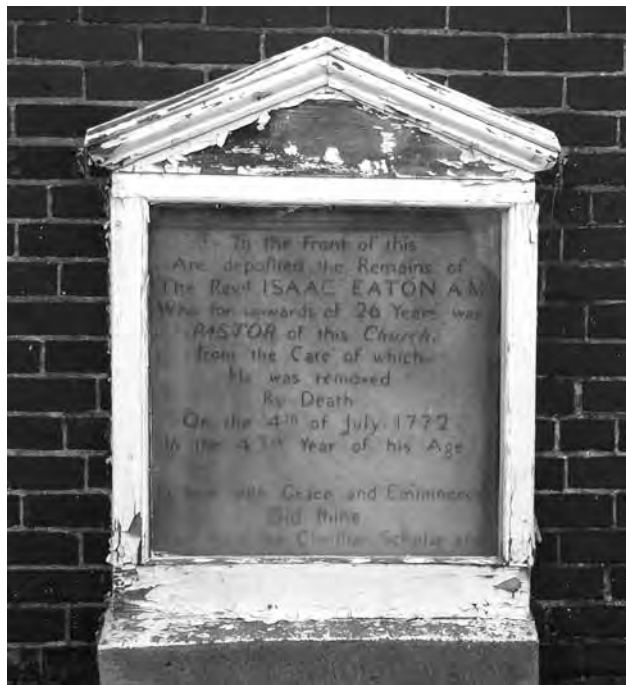 In the Front of this
Are deposited the Remains of
The Revd. ISAAC EATON A.M
Who for upwards of 26 Years was
PASTOR of this Church.
from the Care of which
He was removed
By Death
On the 4TH of July 1772
In the 47th Year of his Age
with Grace and Eminence
Did shine
Christian Scholar